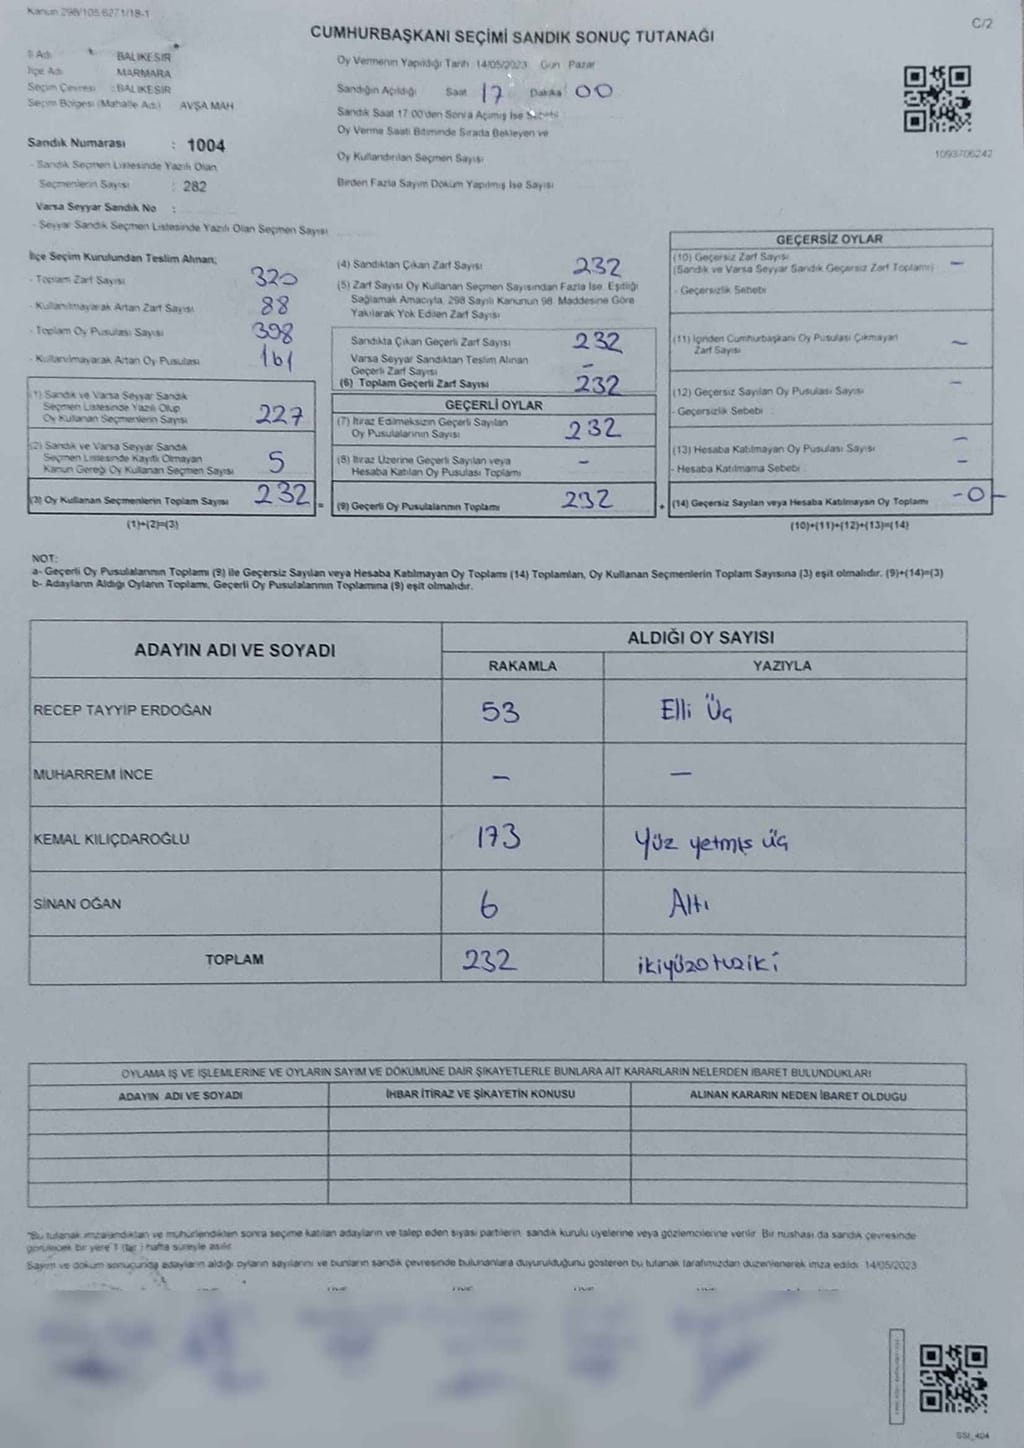 Kanun 298/105.6271/18-1
C/2
CUMHURBAŞKANI SEÇİMİ SANDIK SONUÇ TUTANAĞI
İl Adı : BALIKESİR
İlçe Adı : MARMARA
Seçim Çevresi : BALIKESİR
Seçim Bölgesi (Mahalle Adı) AVŞA MAH
Oy Vermenin Yapıldığı Tarih 14/05/2023 Gün Pazar
Sandığın Açıldığı Saat 17 Dakika 00
Sandık Saat 17:00'den Sonra Açımış İse Sebebi
Oy Verme Saati Bitiminde Sırada Bekleyen ve
Oy Kullandırılan Seçmen Sayısı
Birden Fazla Sayım Döküm Yapılmış İse Sayısı
1093706242
Sandık Numarası : 1004
- Sandık Seçmen Listesinde Yazılı Olan
Seçmenlerin Sayısı : 282
Varsa Seyyar Sandık No :
- Seyyar Sandık Seçmen Listesinde Yazılı Olan Seçmen Sayısı
İlçe Seçim Kurulundan Teslim Alınan;
- Toplam Zarf Sayısı 320
- Kullanılmayarak Artan Zarf Sayısı 88
- Toplam Oy Pusulası Sayısı 398
- Kullanılmayarak Artan Oy Pusulası 161
(1) Sandık ve Varsa Seyyar Sandık
Seçmen Listesinde Yazılı Olup
Oy Kullanan Seçmenlerin Sayısı 227
(2) Sandık ve Varsa Seyyar Sandık
Seçmen Listesinde Kayıtlı Olmayan
Kanun Gereği Oy Kullanan Seçmen Sayısı 5
(3) Oy Kullanan Seçmenlerin Toplam Sayısı 232 =
(1)+(2)=(3)
(4) Sandıktan Çıkan Zarf Sayısı 232
(5) Zarf Sayısı Oy Kullanan Seçmen Sayısından Fazla İse, Eşitliği
Sağlamak Amacıyla, 298 Sayılı Kanunun 98. Maddesine Göre
Yakılarak Yok Edilen Zarf Sayısı
Sandıkta Çıkan Geçerli Zarf Sayısı 232
Varsa Seyyar Sandıktan Teslim Alınan
Geçerli Zarf Sayısı –
(6) Toplam Geçerli Zarf Sayısı 232
GEÇERLİ OYLAR
(7) İtiraz Edilmeksizin Geçerli Sayılan
Oy Pusulalarının Sayısı 232
(8) İtiraz Üzerine Geçerli Sayılan veya
Hesaba Katılan Oy Pusulası Toplamı –
(9) Geçerli Oy Pusulalarının Toplamı 232 +
GEÇERSİZ OYLAR
(10) Geçersiz Zarf Sayısı –
(Sandık ve Varsa Seyyar Sandık Geçersiz Zarf Toplamı)
- Geçersizlik Sebebi
(11) İçinden Cumhurbaşkanı Oy Pusulası Çıkmayan
Zarf Sayısı –
(12) Geçersiz Sayılan Oy Pusulası Sayısı –
- Geçersizlik Sebebi :
(13) Hesaba Katılmayan Oy Pusulası Sayısı –
- Hesaba Katılmama Sebebi : –
(14) Geçersiz Sayılan veya Hesaba Katılmayan Oy Toplamı -0-
(10)+(11)+(12)+(13)=(14)
NOT:
a- Geçerli Oy Pusulalarının Toplamı (9) ile Geçersiz Sayılan veya Hesaba Katılmayan Oy Toplamı (14) Toplamları, Oy Kullanan Seçmenlerin Toplam Sayısına (3) eşit olmalıdır. (9)+(14)=(3)
b- Adayların Aldığı Oyların Toplamı, Geçerli Oy Pusulalarının Toplamına (9) eşit olmalıdır.
ADAYIN ADI VE SOYADI
ALDIĞI OY SAYISI
RAKAMLA YAZIYLA
RECEP TAYYİP ERDOĞAN 53 Elli Üç
MUHARREM İNCE – –
KEMAL KILIÇDAROĞLU 173 Yüz yetmiş üç
SİNAN OĞAN 6 Altı
TOPLAM 232 ikiyüzotuziki
OYLAMA İŞ VE İŞLEMLERİNE VE OYLARIN SAYIM VE DÖKÜMÜNE DAİR ŞİKAYETLERLE BUNLARA AİT KARARLARIN NELERDEN İBARET BULUNDUKLARI
ADAYIN ADI VE SOYADI İHBAR İTİRAZ VE ŞİKAYETİN KONUSU ALINAN KARARIN NEDEN İBARET OLDUĞU
"Bu tutanak imzalandıktan ve mühürlendikten sonra seçime katılan adayların ve talep eden siyasi partilerin, sandık kurulu üyelerine veya gözlemcilerine verilir. Bir nushası da sandık çevresinde
görülecek bir yere 1 (bir ) hafta süreyle asılır.
Sayım ve döküm sonucunda adayların aldığı oyların sayılarını ve bunların sandık çevresinde bulunanlara duyurulduğunu gösteren bu tutanak tarafımızdan düzenlenerek imza edildi. 14/05/2023
SSI_404